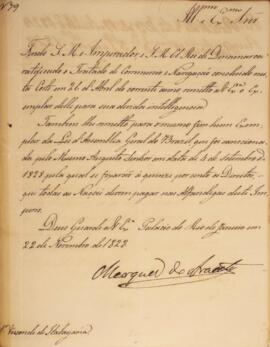 Nº 79
Illmo e Exmo Snr
Tendo S. M. o Imperador e S. M. El Rei de Dinamarca
ratificado o Tratado de Commercio e Navegação concluido nesta
Corte em 26 de Abril do corrente anno remetto a V. Exª o Ex-
emplar delle para sua devida intelligencia.
Tambem lhe remetto para o mesmo fim hum Exem-
plar da Lei d'Assemblea Geral do Brazil que foi sanccionada
pelo Mesmo Augusto Senhor em data de 4 de Setembro de
1828 pela qual se fixarão á quinze por cento os Direitos,
que todas as Nações devem pagar nas Alfandegas deste Im-
perio.
Deus Guarde a V. Exª Palacio do Rio de Janeiro em
22 de Novembro de 1828
Marquez do Aracaty
Visconde de Itabayana